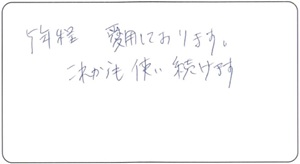 5年程 愛用しております。
これからも使い続けます